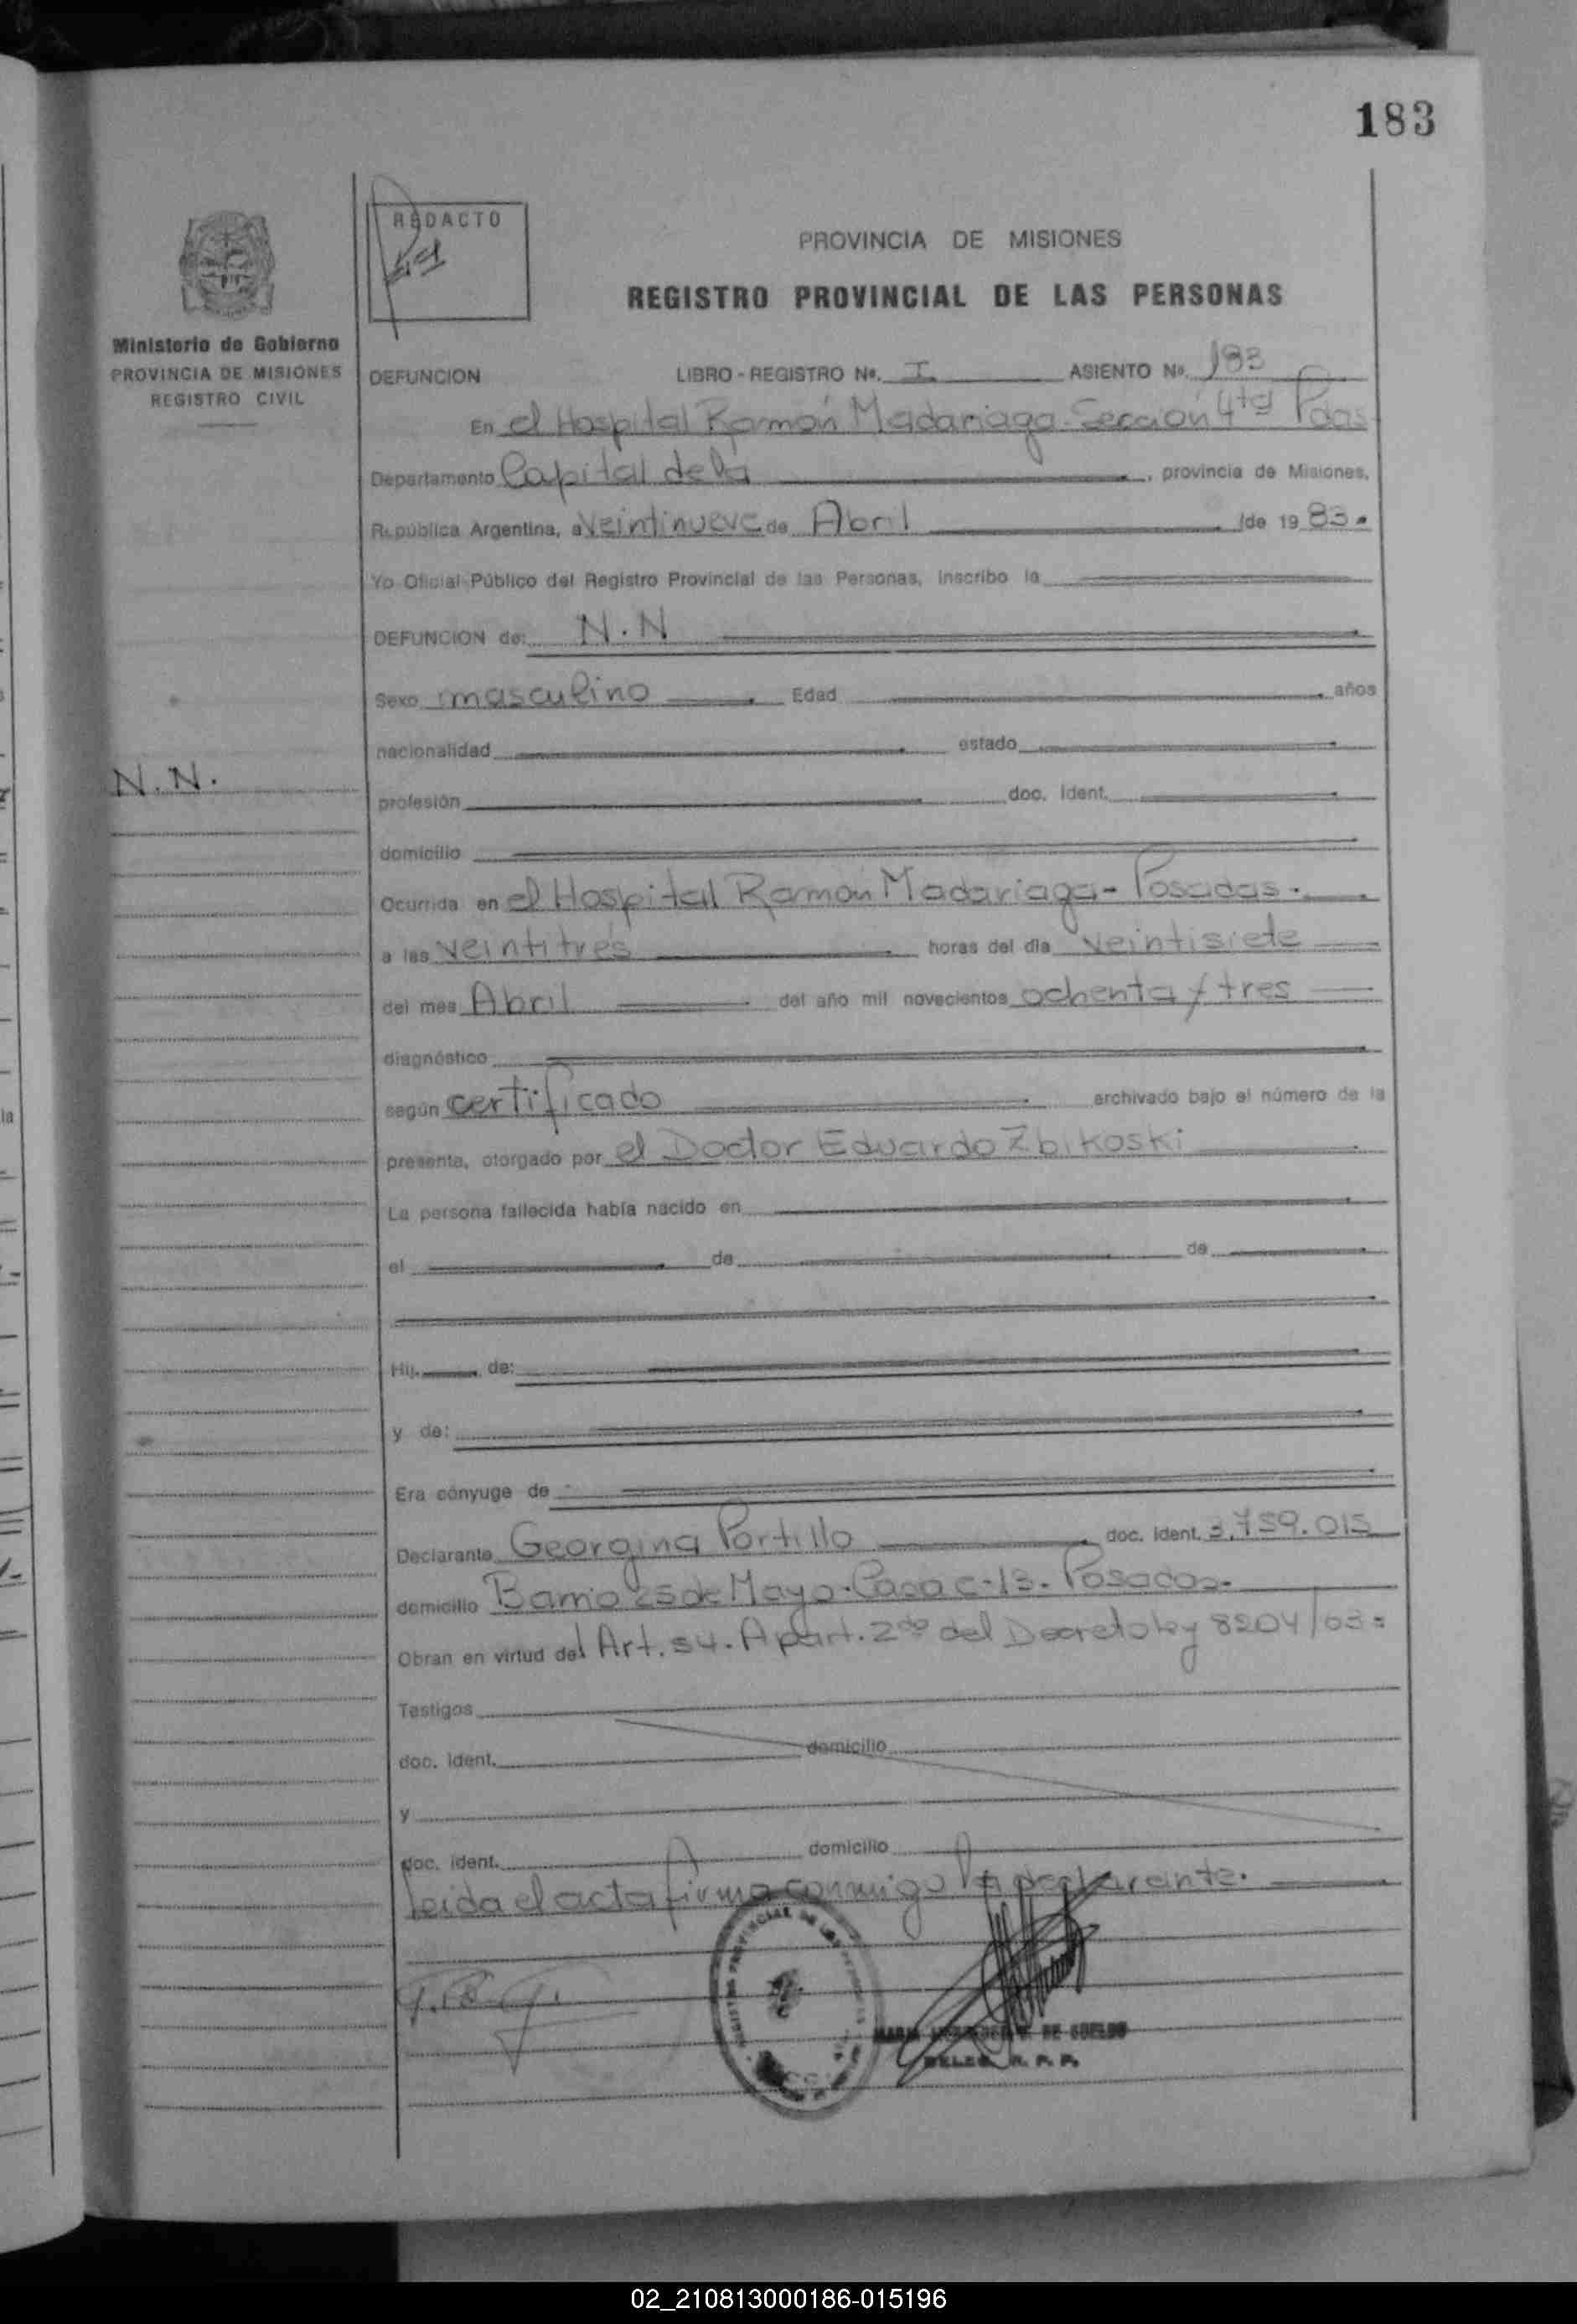 183
REDACTO
PROVINCIA DE MISIONES
REGISTRO PROVINCIAL DE LAS PERSONAS
Ministerio de Gobierno
PROVINCIA DE MISIONES
REGISTRO CIVIL
DEFUNCION LIBRO - REGISTRO Nº. I ASIENTO Nº. 183
En el Hospital Ramón Madariaga - Sección 4ta Pdas
Departamento Capital de la , provincia de Misiones,
República Argentina, a Veintinueve de Abril de 1983.
Yo Oficial Público del Registro Provincial de las Personas, inscribo la
DEFUNCION de: N.N
Sexo masculino Edad años
nacionalidad estado
N.N.
profesión doc. ident.
domicilio
Ocurrida en el Hospital Ramón Madariaga - Posadas.
a las veintitrés horas del día veintisiete
del mes Abril del año mil novecientos ochenta y tres
diagnóstico
según certificado archivado bajo el número de la
presente, otorgado por el Doctor Eduardo Zbikoski
La persona fallecida había nacido en
el de de
Hij de:
y de:
Era cónyuge de
Declarante Georgina Portillo doc. ident. 3.759.015
domicilio Barrio 25 de Mayo. Casa C-13. Posadas.
Obran en virtud del Art. 54. Apart. 2do del Decreto ley 8204/63=
Testigos
doc. ident. domicilio
y
doc. ident. domicilio
leida el acta firma conmigo la declarante.
DE
R. P. P.
02_210813000186-015196